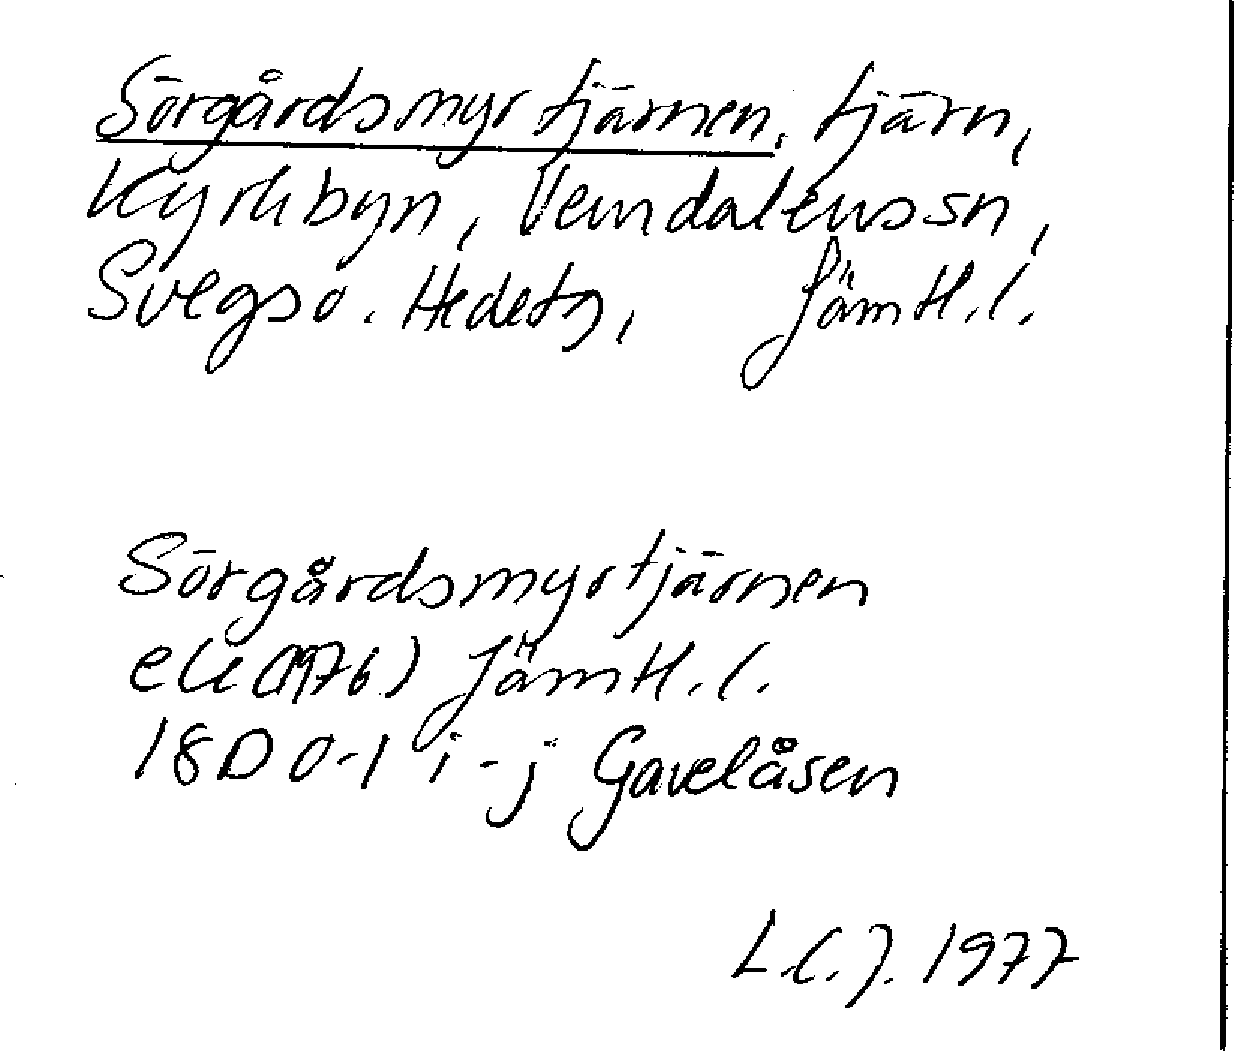 Sörgårdsmyrtjärnen, tjärn,
Kyrkbyn, Vemdalens sn,
Svegs o. Hede tg, Jämtl. l.
Sörgårdsmyrtjärnen
ek (1976) Jämtl. l.
18D 0-1 i-j Gavelåsen
L.C.J. 1977